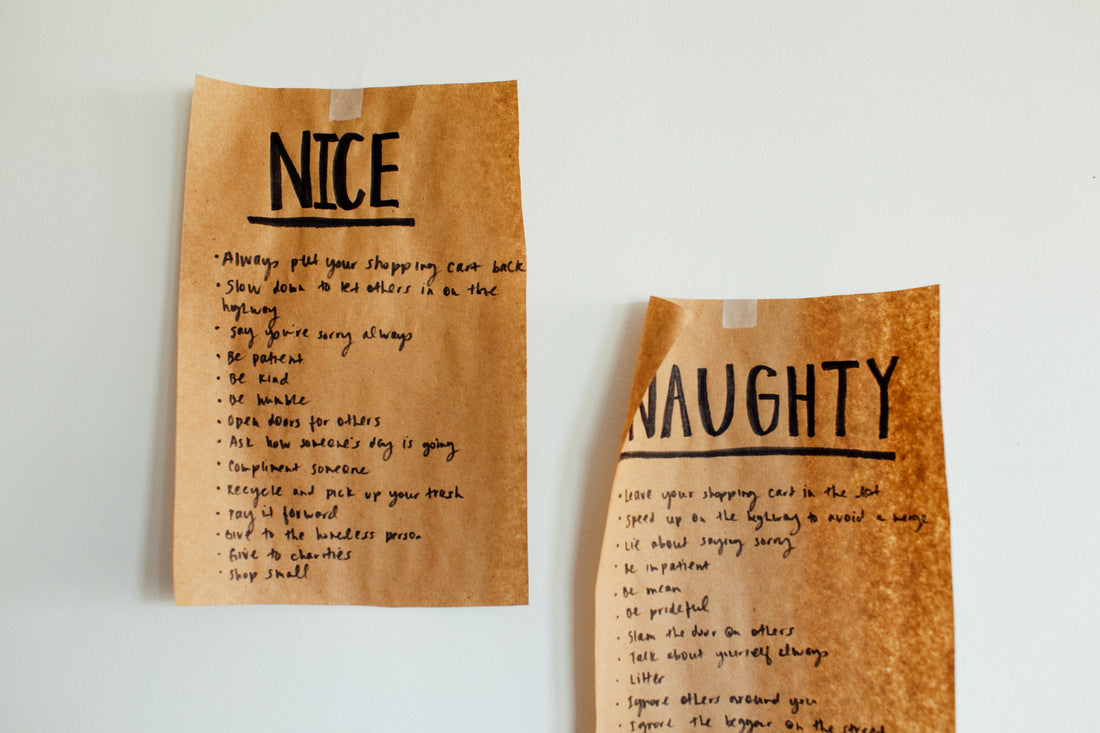 NICE
• Always put your shopping cart back
• Slow down to let others in on the
highway
• Say you're sorry always
• Be patient
• Be kind
• Be humble
• Open doors for others
• Ask how someone's day is going
• Compliment someone
• Recycle and pick up your trash
• Pay it forward
• Give to the homeless person
• Give to charities
• Shop small
NAUGHTY
• Leave your shopping cart in the lot
• Speed up on the highway to avoid a merge
• Lie about saying sorry
• Be impatient
• Be mean
• Be prideful
• Slam the door on others
• Talk about yourself always
• Litter
• Ignore others around you
• Ignore the beggar on the street